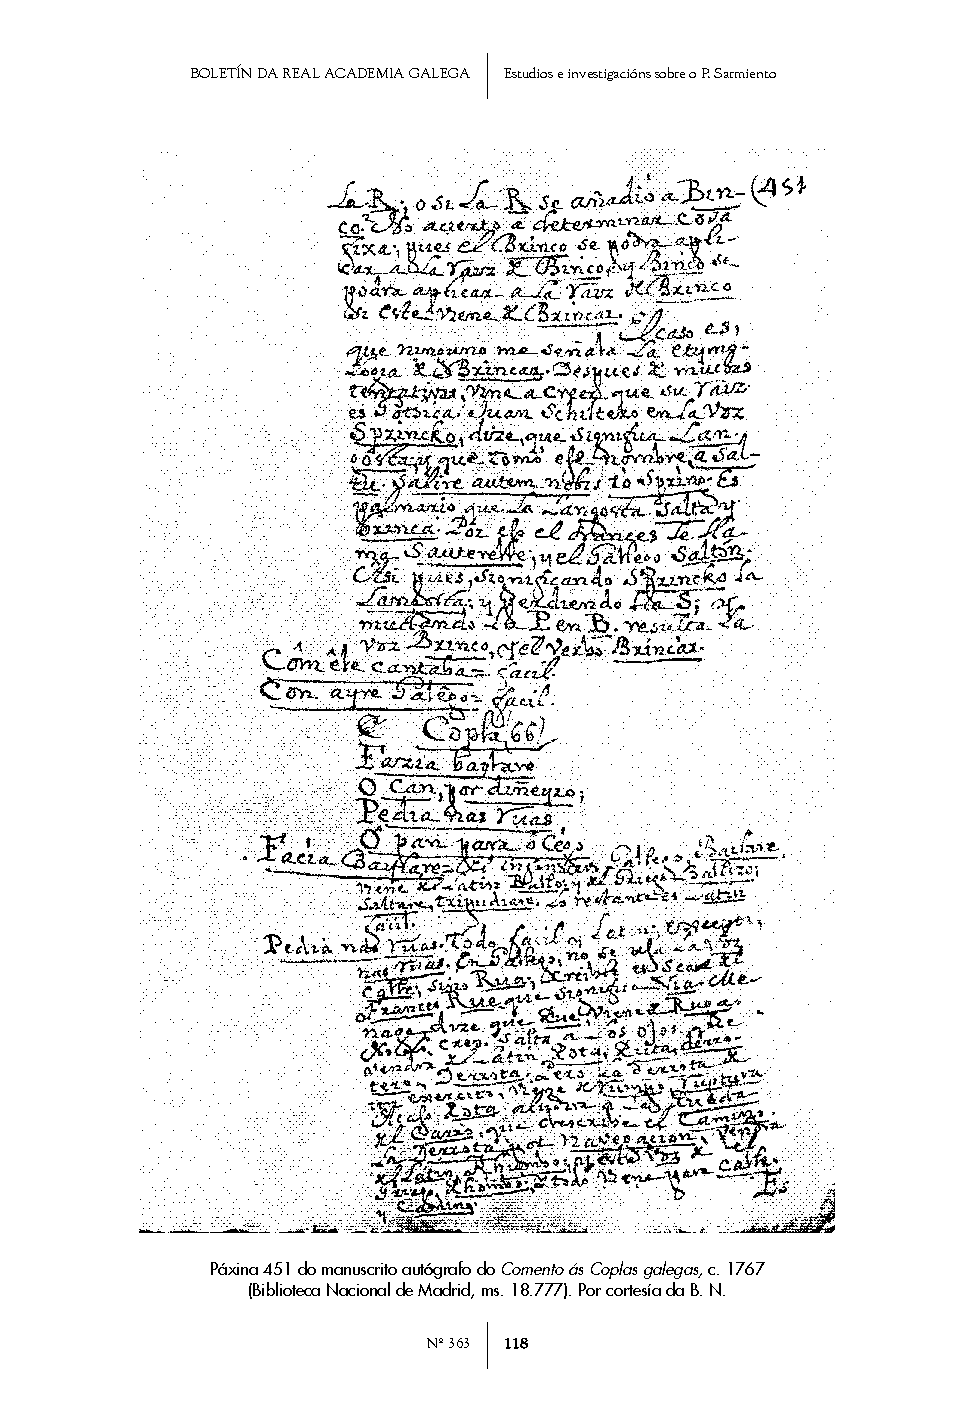 BOLETÍN DA REAL ACADEMIA GALEGA
Estudios e investigacións sobre o P. Sarmiento
(451
La R; o si La R se añadiò a Brin-
co. No acierto a determinar cosa
fixa; pues el Brinco se podrà apli-
car a La rayz de Birico, y Birico se
podrà aplicar a La rayz de Brinco
si este viene de Brincar.
El caso es,
que ninguno me señala La etymo-
Logia de Brincar. Despues de muchas
tentativas, vine a creer, que su rayz
es Gothica. Juan Schiltero en La voz
Sprincko, dize, que significa Lan-
gosta; y que tomò esse nombre, a Sal-
tu. Salire autem nobis 10 Sprino. Es
palmario que La Langosta Salta, y
Brinca. Por esso el Frances Le lla-
ma Sauterelle; y el Gallego Saltòn;
Assi pues, significando Sprincko La
Langosta; y perdiendo La S; y
mudando La P en B. resulta La
voz Brinco, y el verbo Brincar.
Com êle cantaba= facil.
Con ayre Galego= facil.
Copla, 66)
Facia baylare
O Can, por diñeyro;
Pedia nas ruas,
O pan para o Cego
Facia Baylare= infinitivo Gallego, Baylare,
viene de Latin Ballo; y de Griego Ballizo;
Saltare, tripudiare. Lo restante es Latin
facil.
Pedia nas ruas. Todo facil y Latin; excepto,
nas ruas. En Gallego, no se usa La voz
calle, sino Rua;
Frances Rue que significa Via. Me-
nage dize que Rue, viene de Ruga.
Salta a Los ojos que
de Latin Rota, Ruta, derro-
tero, Derrota. Pero La derrota de
un exercito, viene de rumpo, ruptura
Acaso Rota
que describe el Camino.
La Derrota, y de navegacion,
todo viene para calle,
y Camino.
Es
Páxina 451 do manuscrito autógrafo do Comento ás Coplas galegas, c. 1767
(Biblioteca Nacional de Madrid, ms. 18.777). Por cortesía da B. N.
Nº 363
118